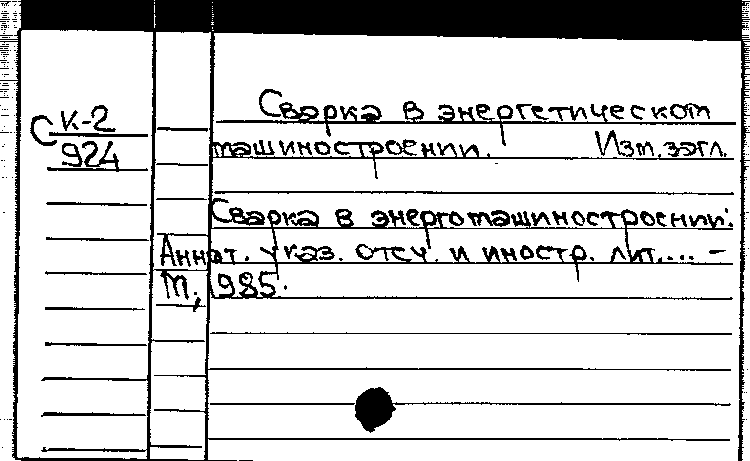 С К-2
924
Сварка в энергетическом
машиностроении. Изм. загл.
Сварка в энергомашиностроении:
Аннот. указ. отеч. и иностр. лит.... –
М., 1985.